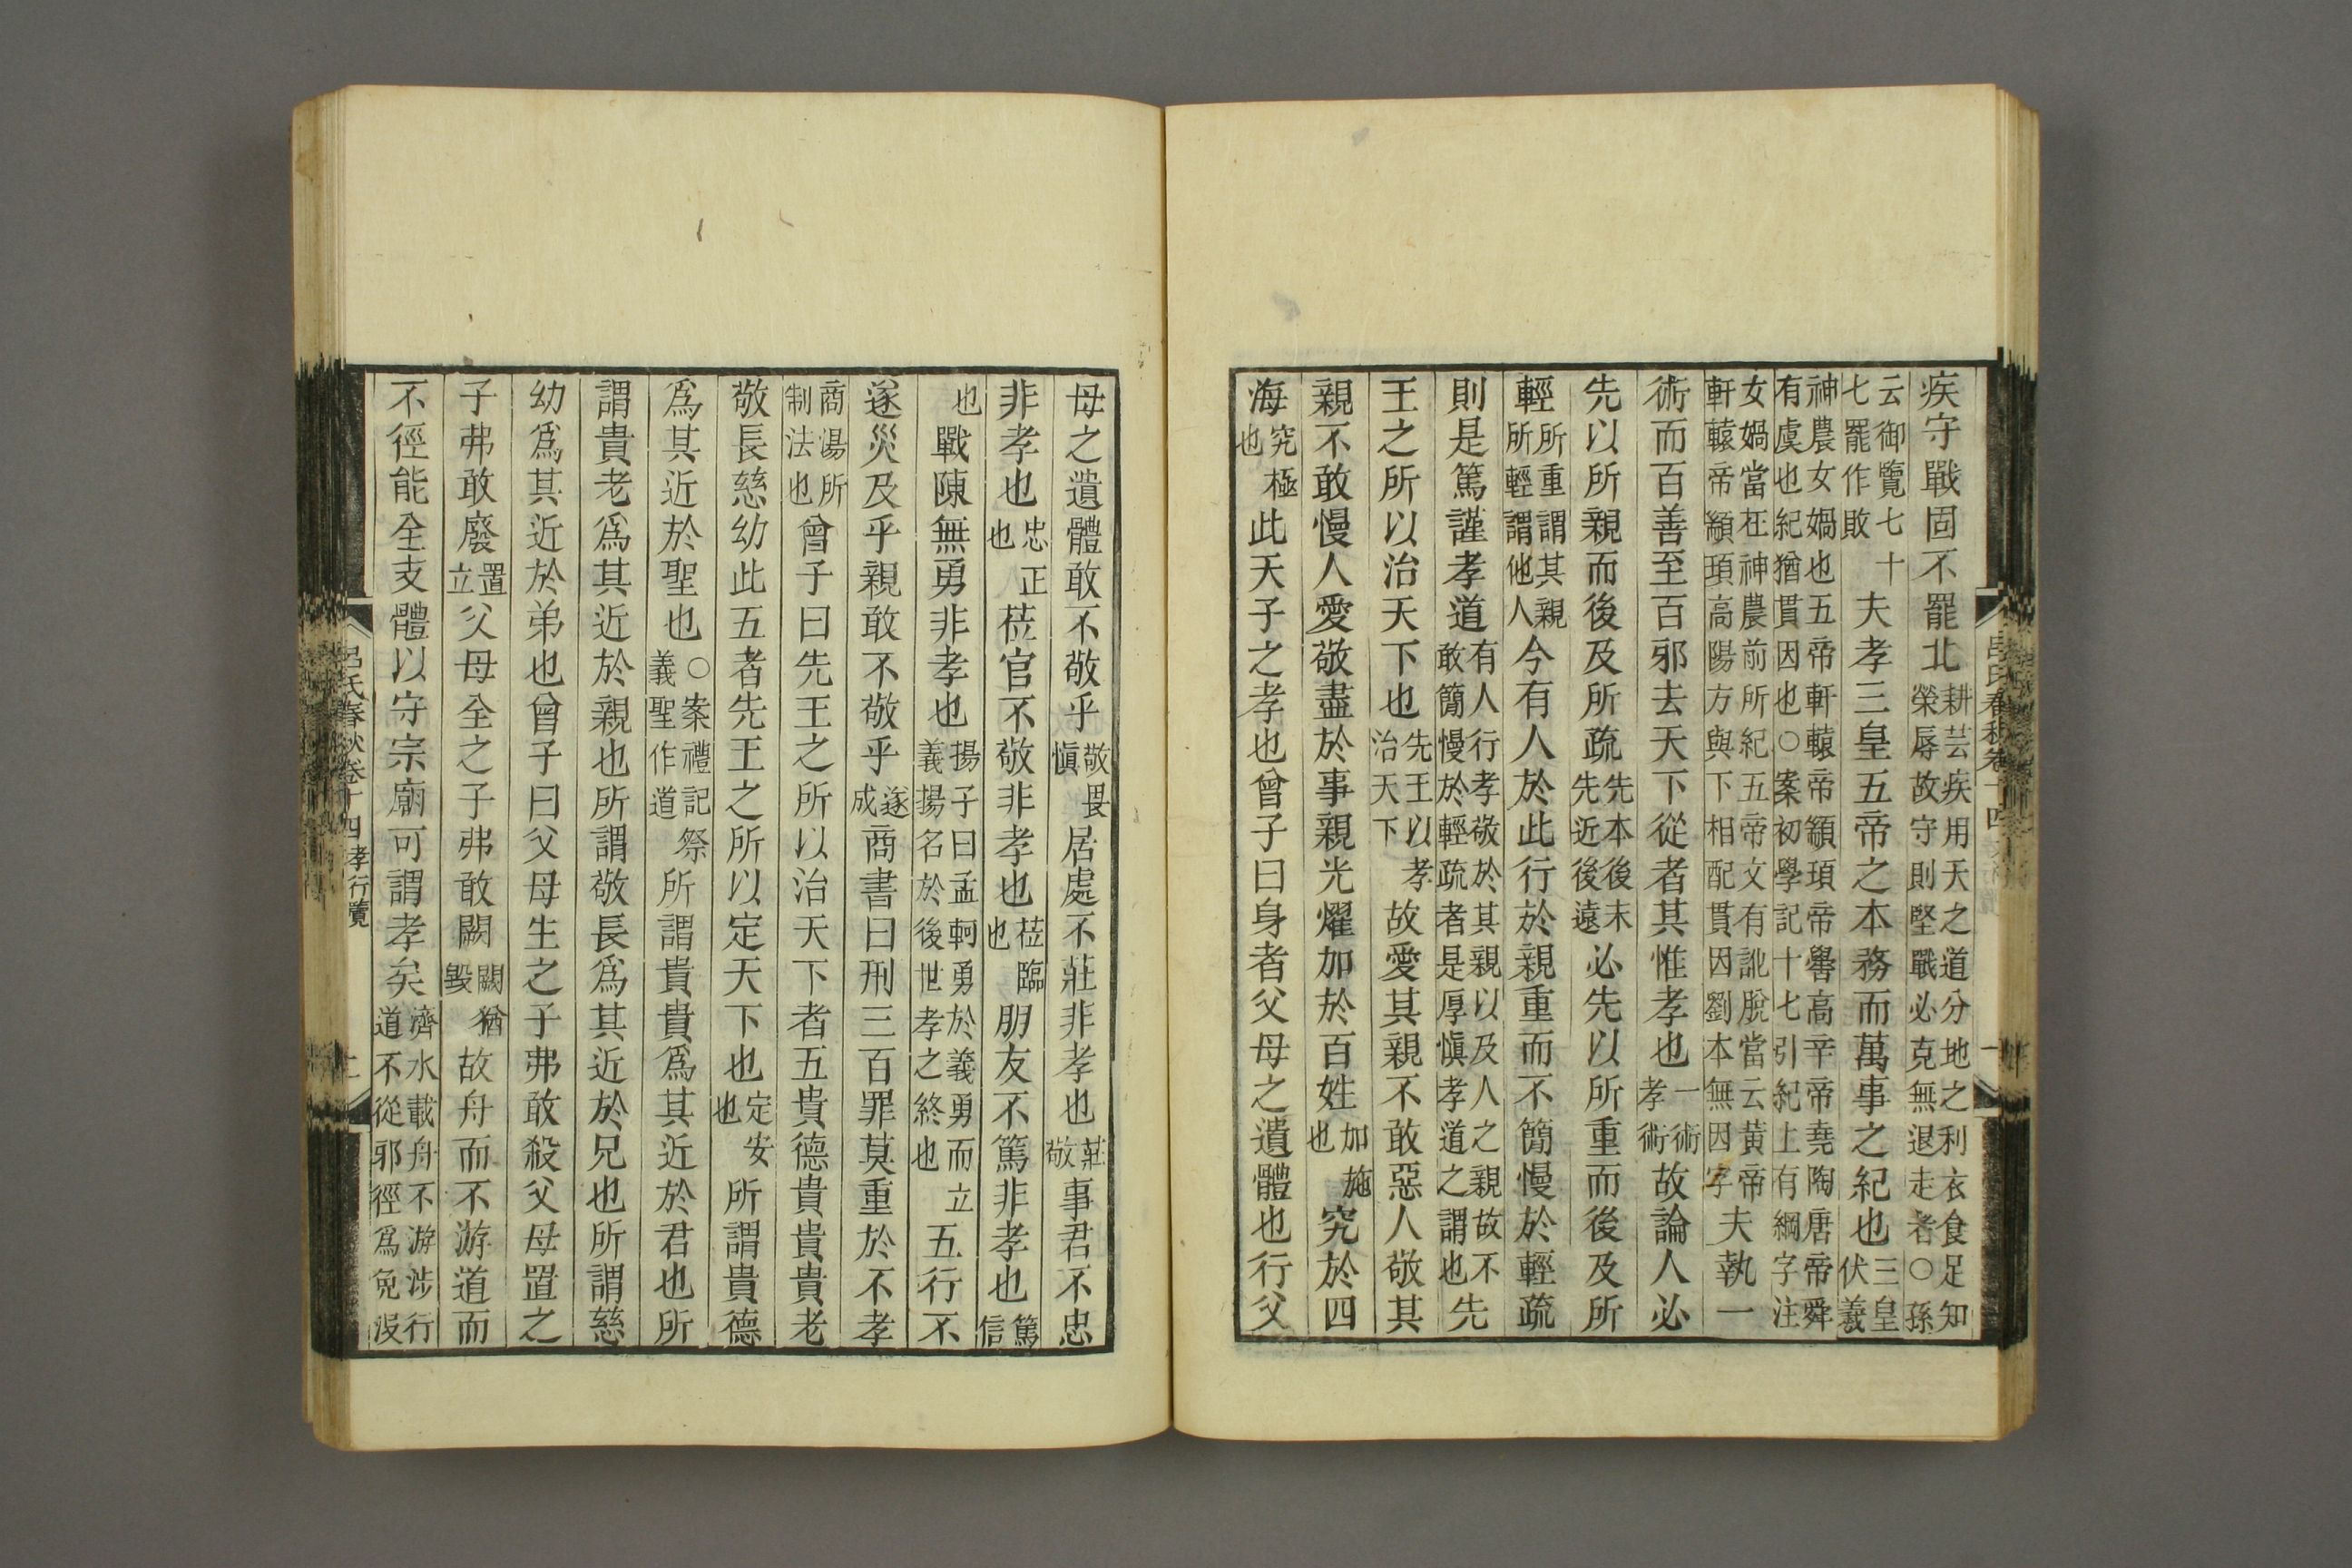 疾守戰固不罷北耕芸疾用天之道分地之利衣食足知榮辱故守則堅戰必克無退走者○孫
云御覽七十七罷作敗夫孝三皇五帝之本務而萬事之紀也三皇伏羲
神農女媧也五帝軒轅帝顓頊帝嚳高辛帝堯陶唐帝舜有虞也紀猶貫因也○案初學記十七引紀上有綱字注
女媧當在神農前所紀五帝文有訛脫當云黃帝軒轅帝顓頊高陽方與下相配貫因劉本無因字夫執一
術而百善至百邪去天下從者其惟孝也一術孝術故論人必
先以所親而後及所疏先本後末先近後遠必先以所重而後及所
輕所重謂其親所輕謂他人今有人於此行於親重而不簡慢於輕疏
則是篤謹孝道有人行孝敬於其親以及人之親故不敢簡慢於輕疏者是厚慎孝道之謂也先
王之所以治天下也先王以孝治天下故愛其親不敢惡人敬其
親不敢慢人愛敬盡於事親光燿加於百姓加施也究於四
海究極也此天子之孝也曾子曰身者父母之遺體也行父
母之遺體敢不敬乎敬畏慎居處不莊非孝也莊敬事君不忠
非孝也忠正也莅官不敬非孝也莅臨也朋友不篤非孝也篤信
也戰陳無勇非孝也揚子曰孟軻勇於義勇而立義揚名於後世孝之終也五行不
遂災及乎親敢不敬乎遂成商書曰刑三百罪莫重於不孝
商湯所制法也曾子曰先王之所以治天下者五貴德貴貴貴老
敬長慈幼此五者先王之所以定天下也定安也所謂貴德
爲其近於聖也○案禮記祭義聖作道所謂貴貴爲其近於君也所
謂貴老爲其近於親也所謂敬長爲其近於兄也所謂慈
幼爲其近於弟也曾子曰父母生之子弗敢殺父母置之
子弗敢廢置立父母全之子弗敢闕闕猶毀故舟而不游道而
不徑能全支體以守宗廟可謂孝矣濟水載舟不游涉行道不從邪徑爲免沒
呂氏春秋卷十四 孝行覽 二